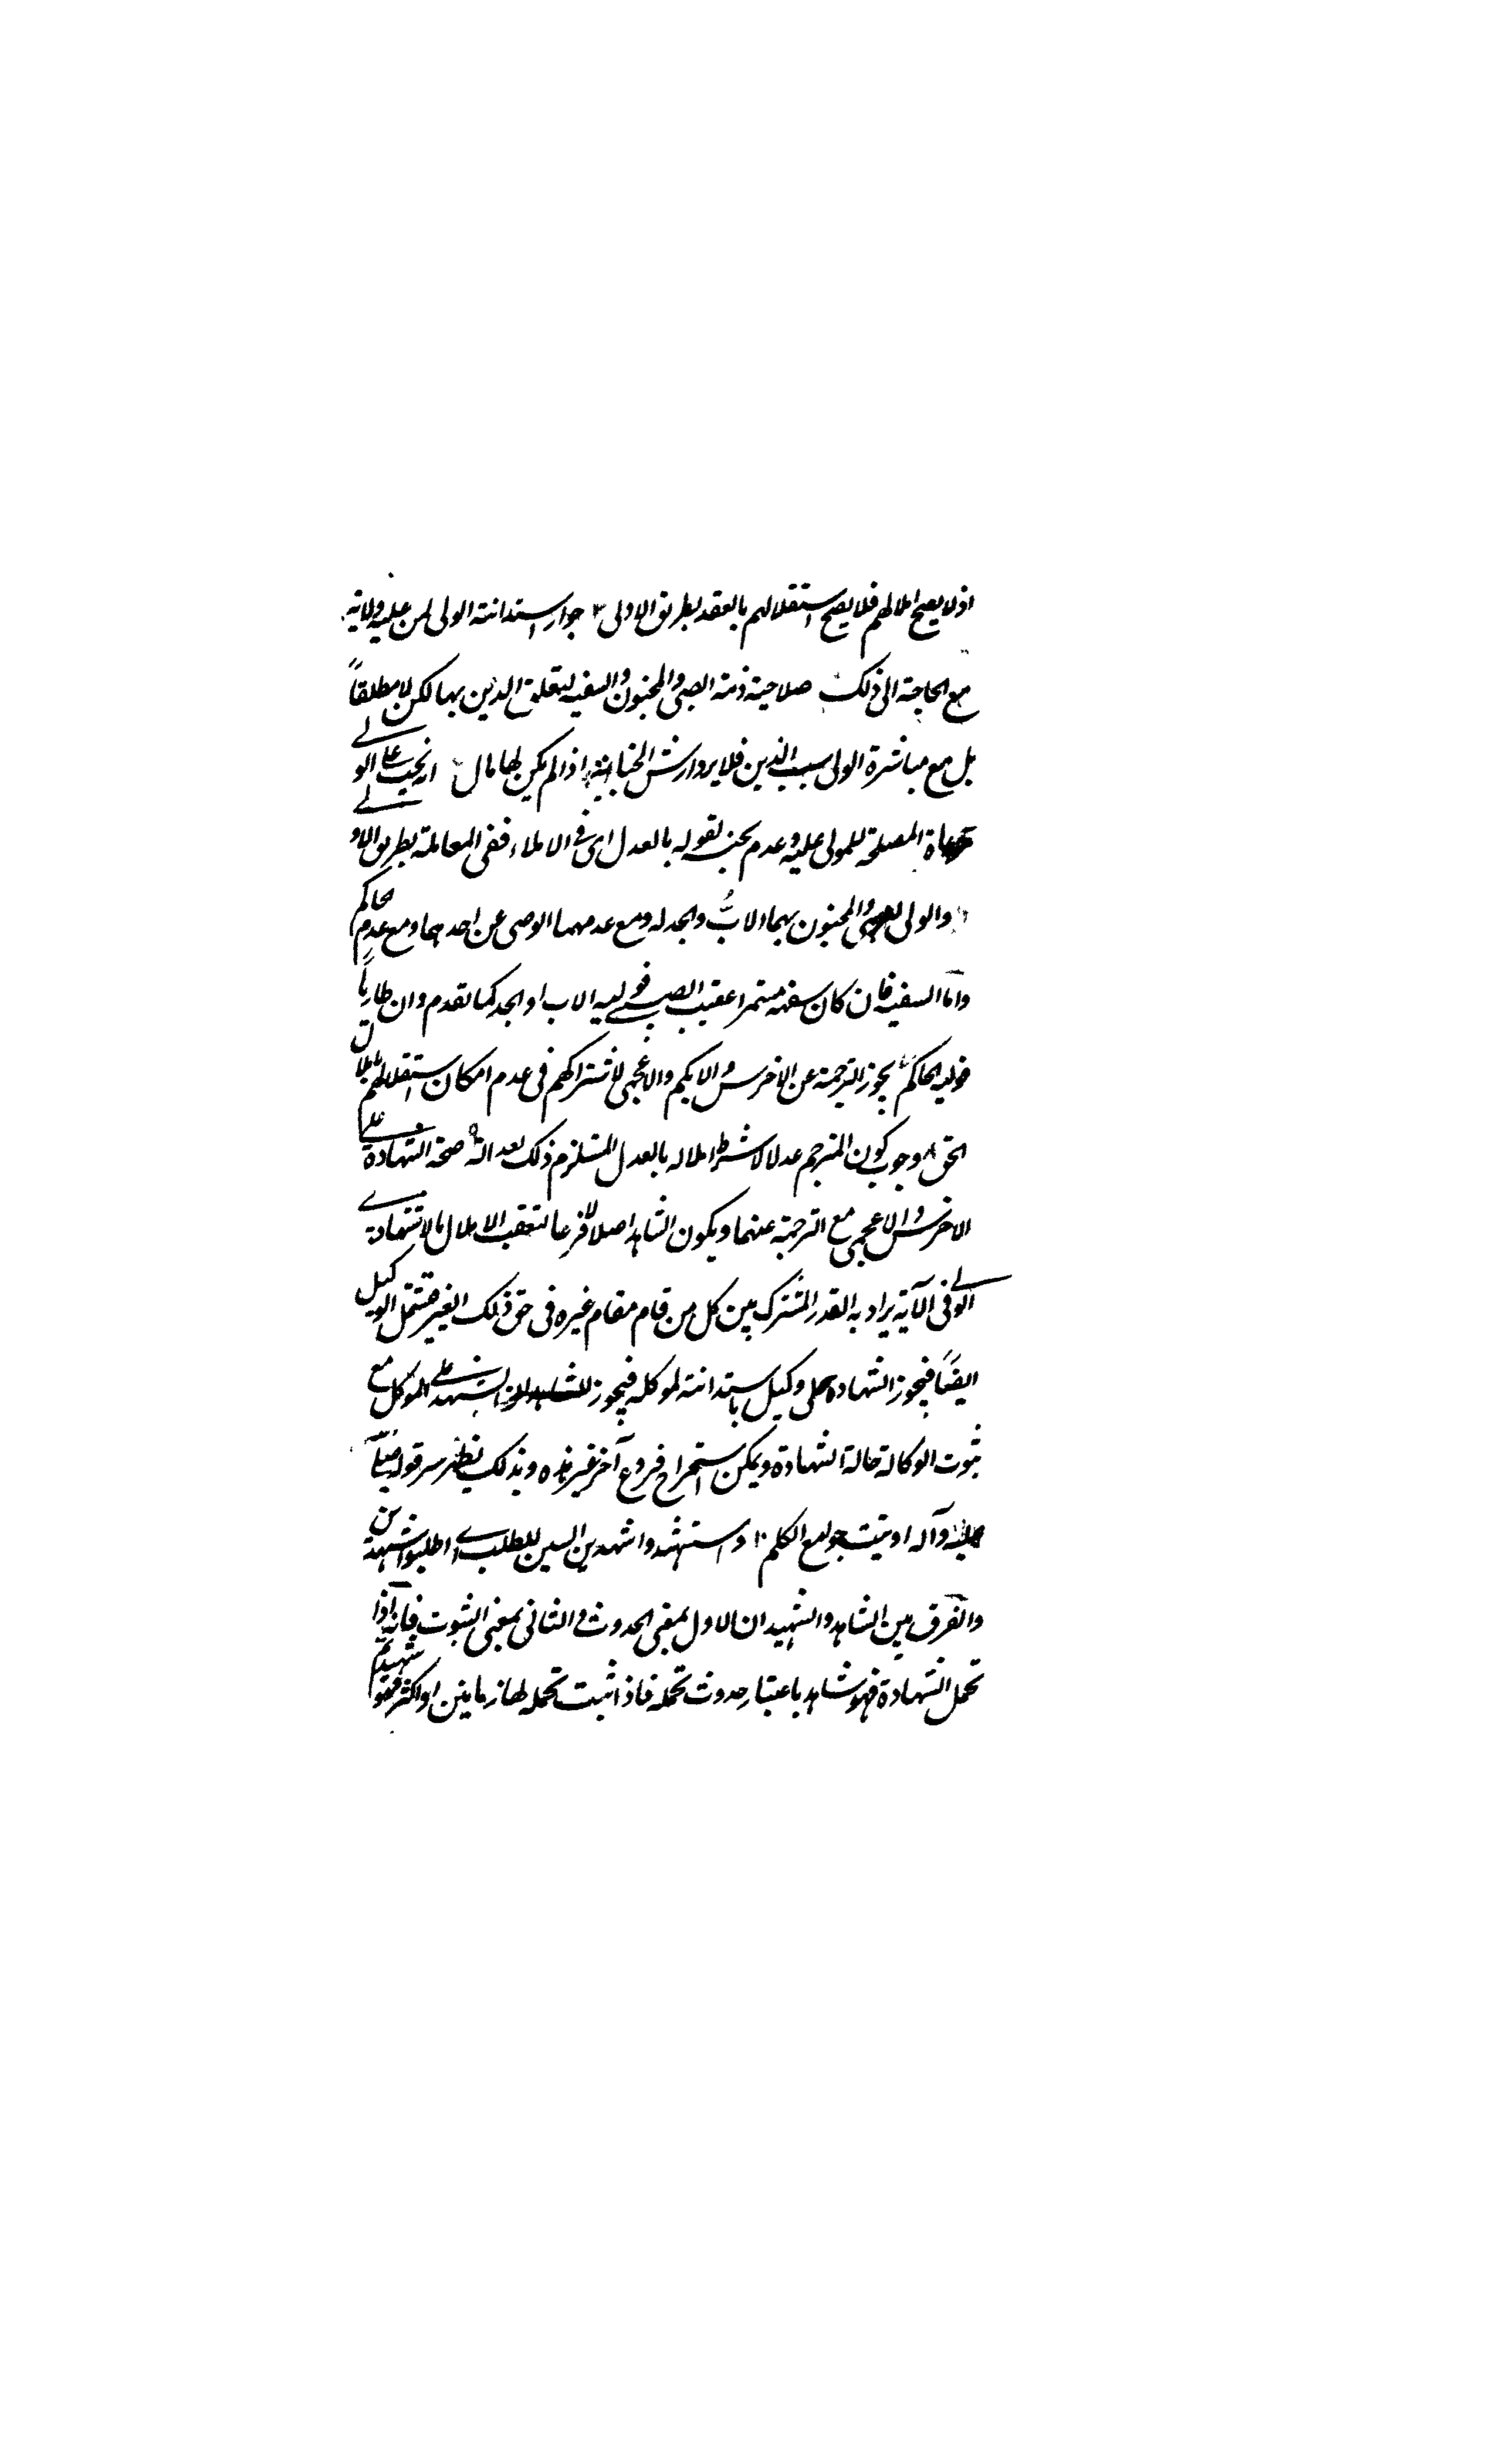 اذ لا يصح املالهم فلا يصح استقلالهم بالعقد بطريق الاولى ٣ جواز استدانته الولى لمن عليه ولايته
مع الحاجة الى ذلك صلاحية ذمة الصبى والمجنون والسفيه لتعلق الدين بها لكن لا مطلقاً
بل مع مباشرة الولى سبب الدين فلا يرد ارش الجناية اذا لم يكن لها مال انه يجب على الولى
مراعاة المصلحة للمولى عليه وعدم بخسه لقوله بالعدل اى فى الاملاء ففى المعاملة بطريق الاولى
والولى للصبى والمجنون هما الابُّ والجد له ومع عدمهما الوصى عن احدهما ومع عدمه الحاكم
وامّا السفيه فان كان سفهه مستمرا عقيب الصبى فوليه الاب او الجد كما تقدم وان طارياً
فوليه الحاكم يجوز الترجمة عن الاخرس والابكم والاعجمى لاشتراكهم فى عدم امكان استقلالهم باملال
الحق ٨ وجوب كون المترجم عدلا لاشتراط املاله بالعدل المستلزم ذلك لعدالته ٩ صحة الشهادة على
الاخرس والاعجمى مع الترجمة عنهما ويكون الشاهد اصلا لا فرعا لتعقب الاملال بالاشهاد
الولى فى الآية يراد به القدر المشترك بين كل من قام مقام غيره فى حق ذلك الغير فتشمل الوكيل
ايضًا فيجوز الشهادة على وكيل باستدانته لموكله فيجوز للشاهد ان يشهد على الموكل مع
ثبوت الوكالة حالة الشهادة ويمكن استخراج فروع آخر غير هذه وبذلك يظهر سر قوله صلى الله
عليه وآله اوتيت جوامع الكلم ١٠ واستشهدوا شهيدين السين للطلب اى اطلبوا شهيدين
والفرق بين الشاهد والشهيد ان الاول بمعنى الحدوث والثانى بمعنى الثبوت فانّه اذا
تحمل الشهادة فهو شاهد باعتبار حدوث تحمله فاذا ثبت تحمله لها زمانين او اكثر فهو شهيد ثم